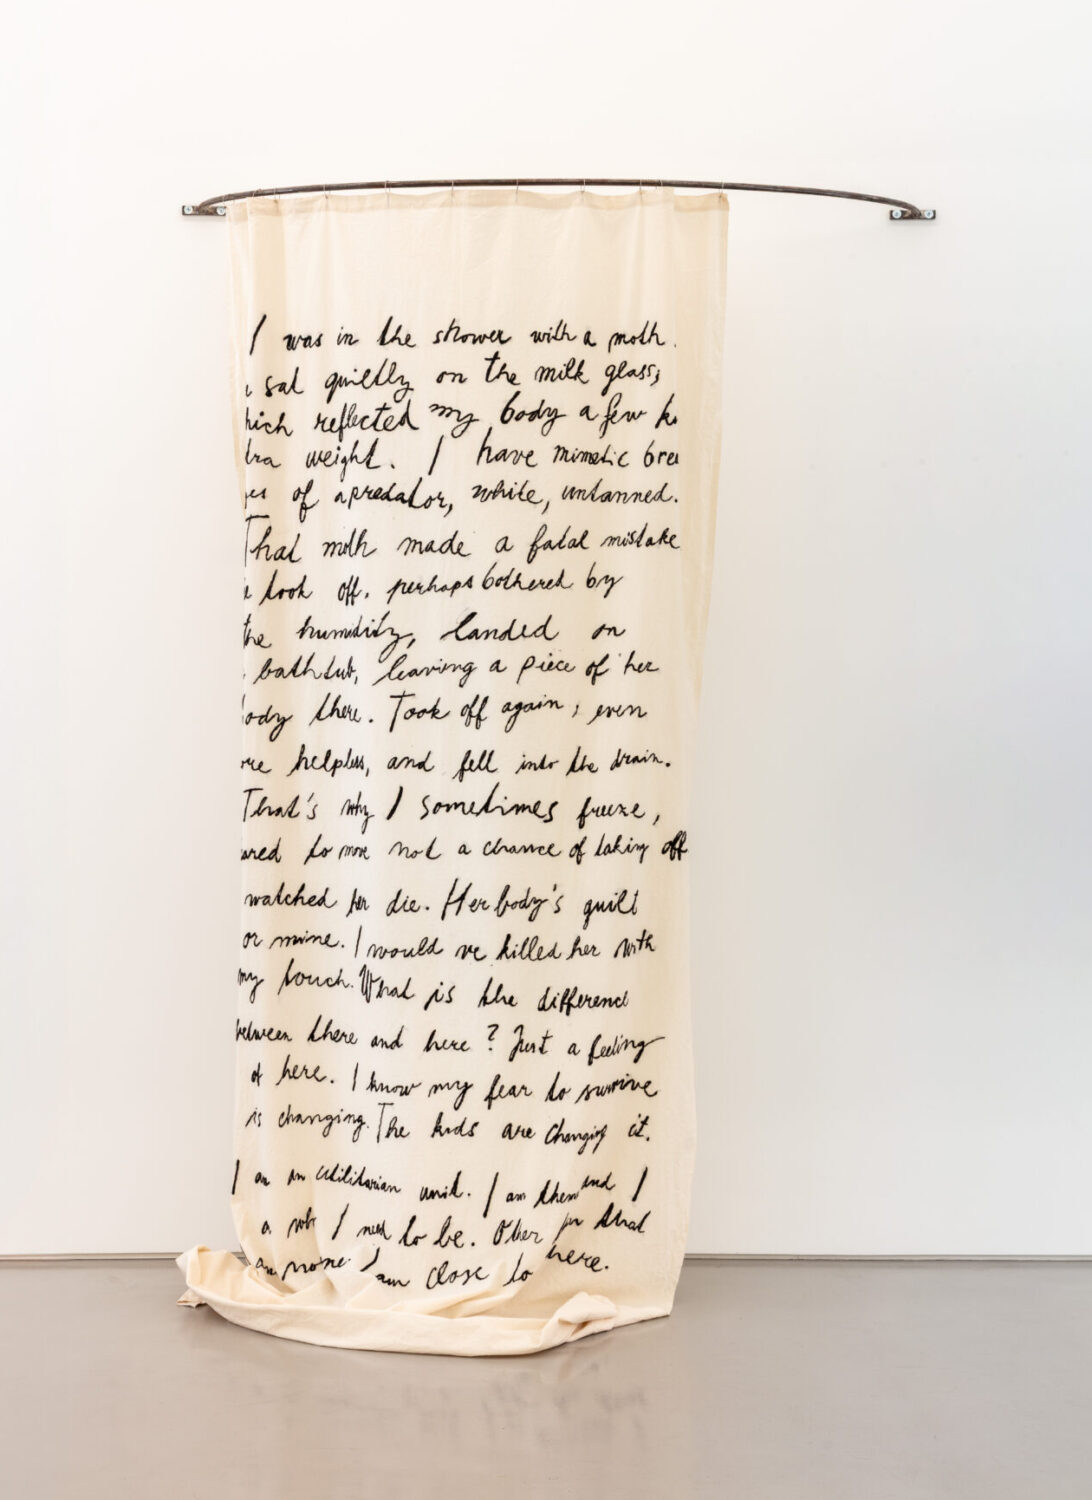 I was in the shower with a moth.
sat quietly on the milk glass,
hich reflected my body a few k
tra weight. I have mimetic bre
es of a predator, white, untanned.
That moth made a fatal mistake
took off. perhaps bothered by
the humidity, landed on
bathtub, leaving a piece of her
ody there. Took off again, even
re helpless, and fell into the drain.
That's why I sometimes freeze,
ared to move not a chance of taking off
watched her die. Her body's guilt
or mine. I would ve killed her with
my touch. What is the difference
between there and here? Just a feeling
of here. I know my fear to survive
is changing. The kids are changing it.
I am an utilitarian unit. I am them and I
a I need to be. Other that
am I am close to here.